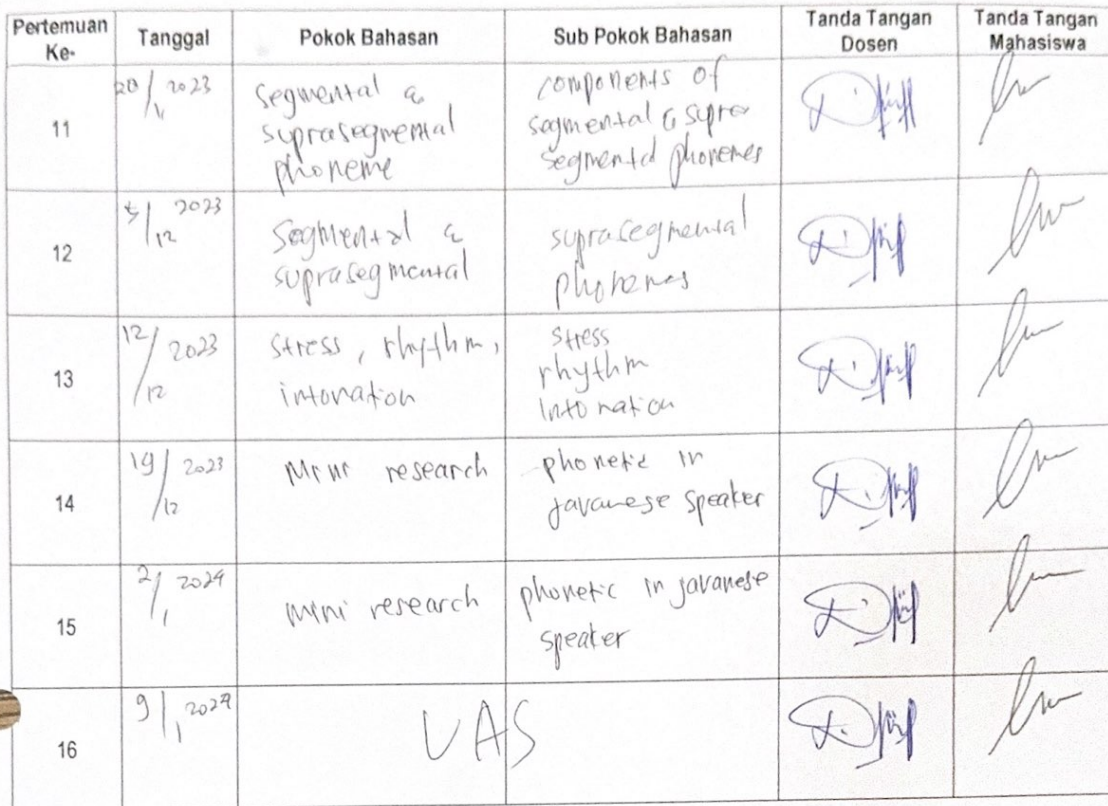 Pertemuan Ke- Tanggal Pokok Bahasan Sub Pokok Bahasan Tanda Tangan Dosen Tanda Tangan Mahasiswa
11
20/11 2023
Segmental &
suprasegmental
phoneme
components of
segmental & supra
segmental phonemes
12
5/12 2023
Segmental &
suprasegmental
suprasegmental
phonemes
13
12/12 2023
Stress, rhythm,
intonation
Stress
rhythm
Intonation
14
19/12 2023
Mini research
phonetic in
javanese speaker
15
2/1 2024
mini research
phonetic in javanese
speaker
16
9/1 2024
UAS